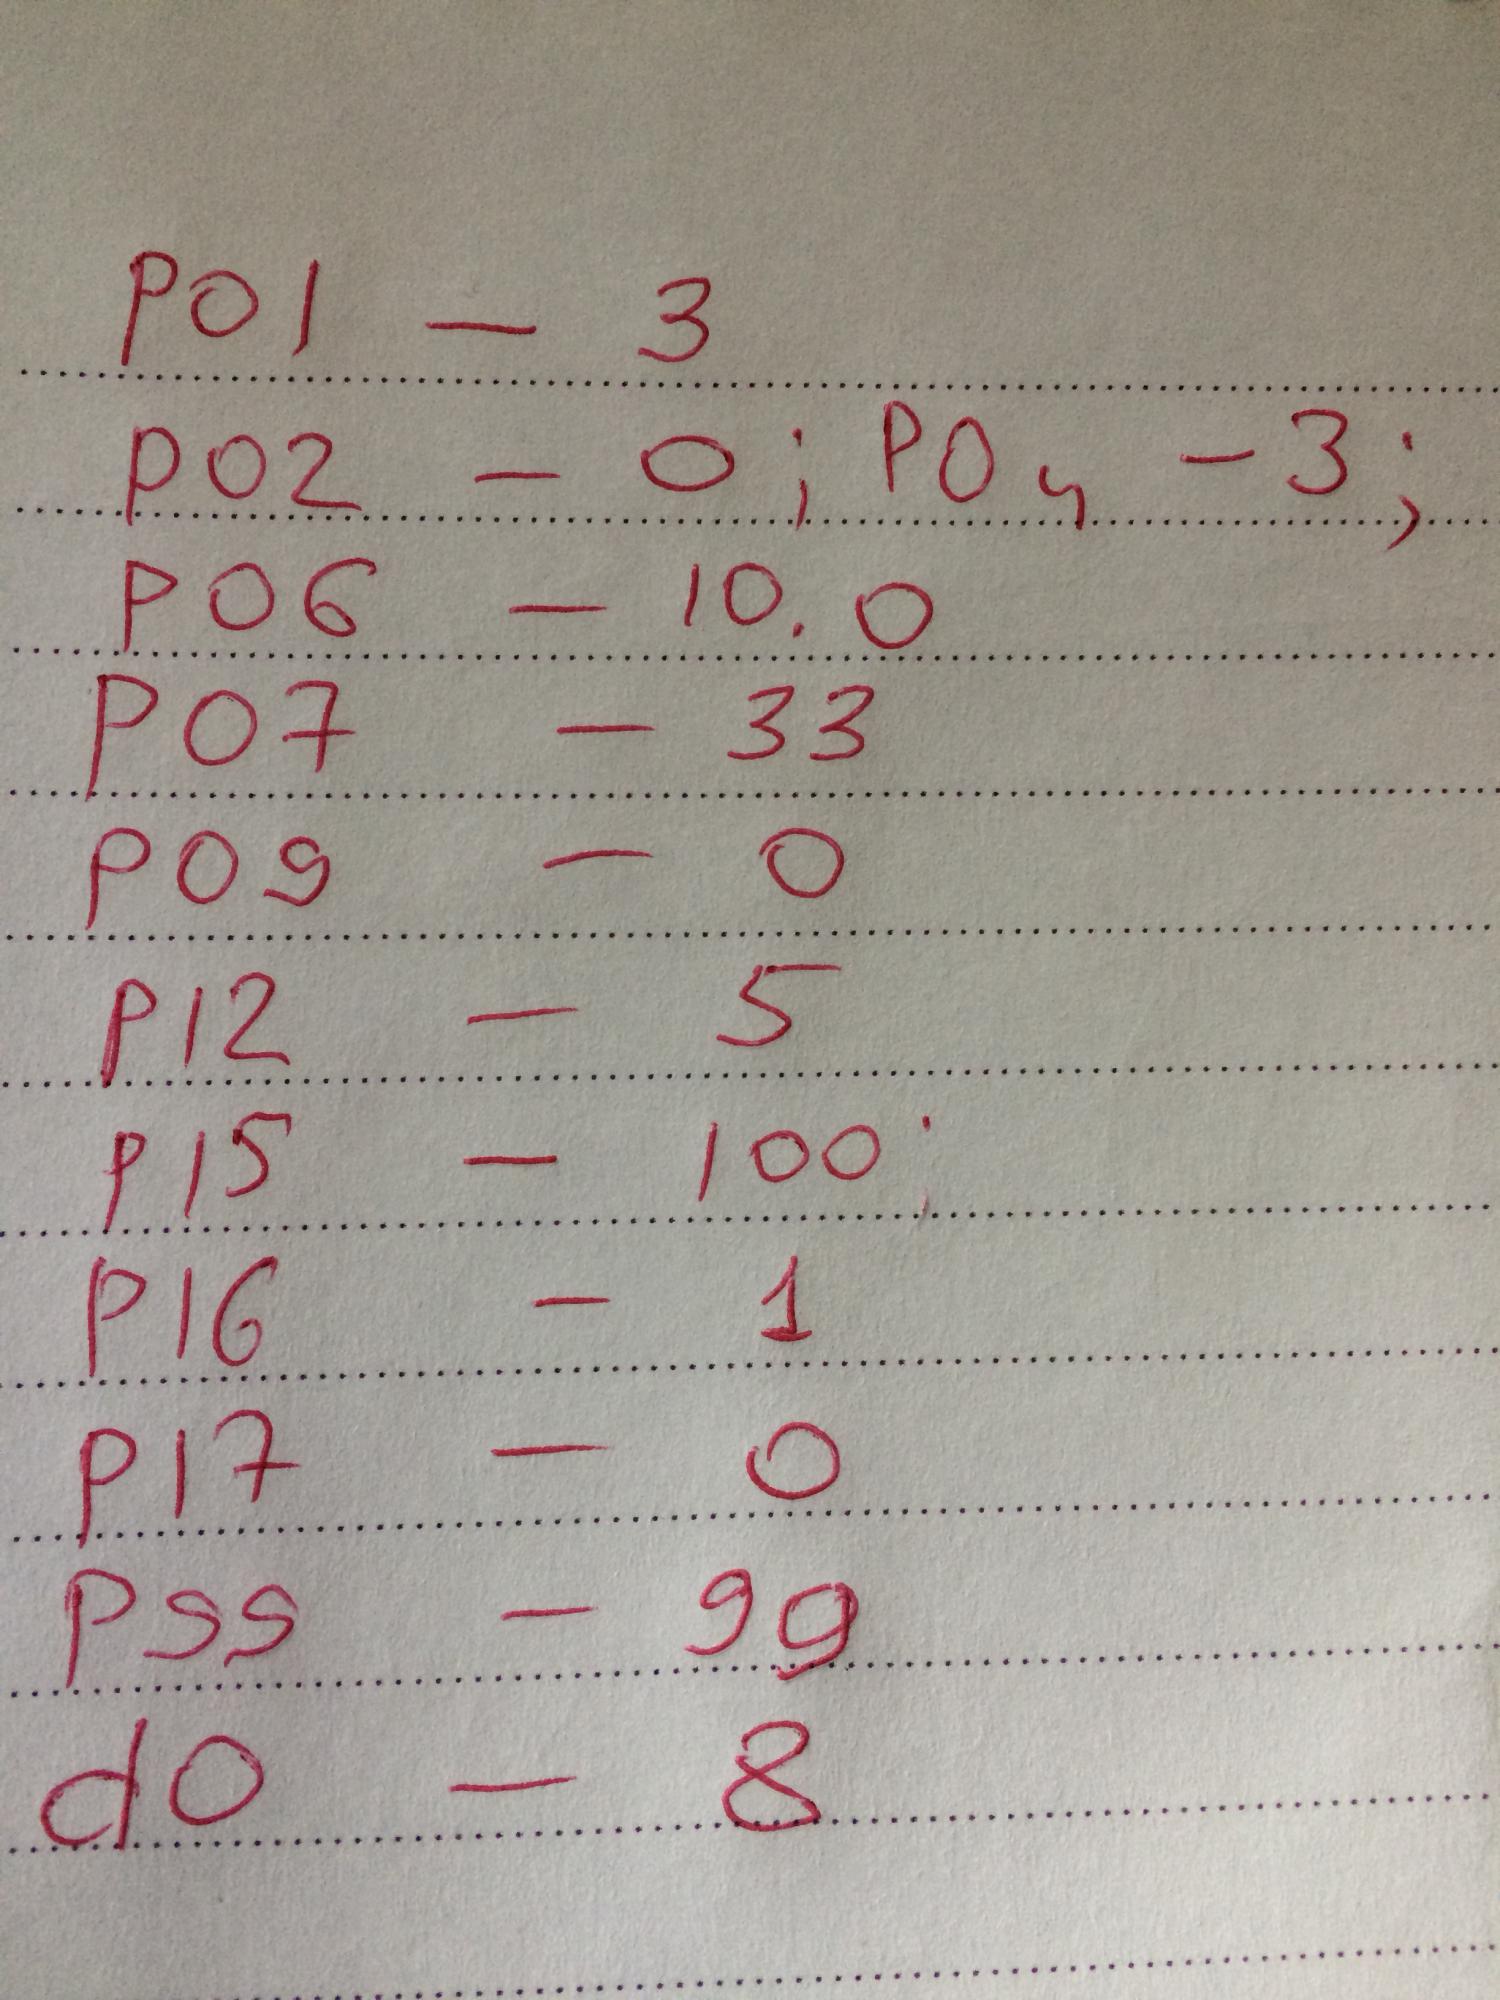 P01 — 3
P02 — 0; P04 — 3;
P06 — 10.0
P07 — 33
P09 — 0
P12 — 5
P15 — 100;
P16 — 1
P17 — 0
P99 — 99
d0 — 8